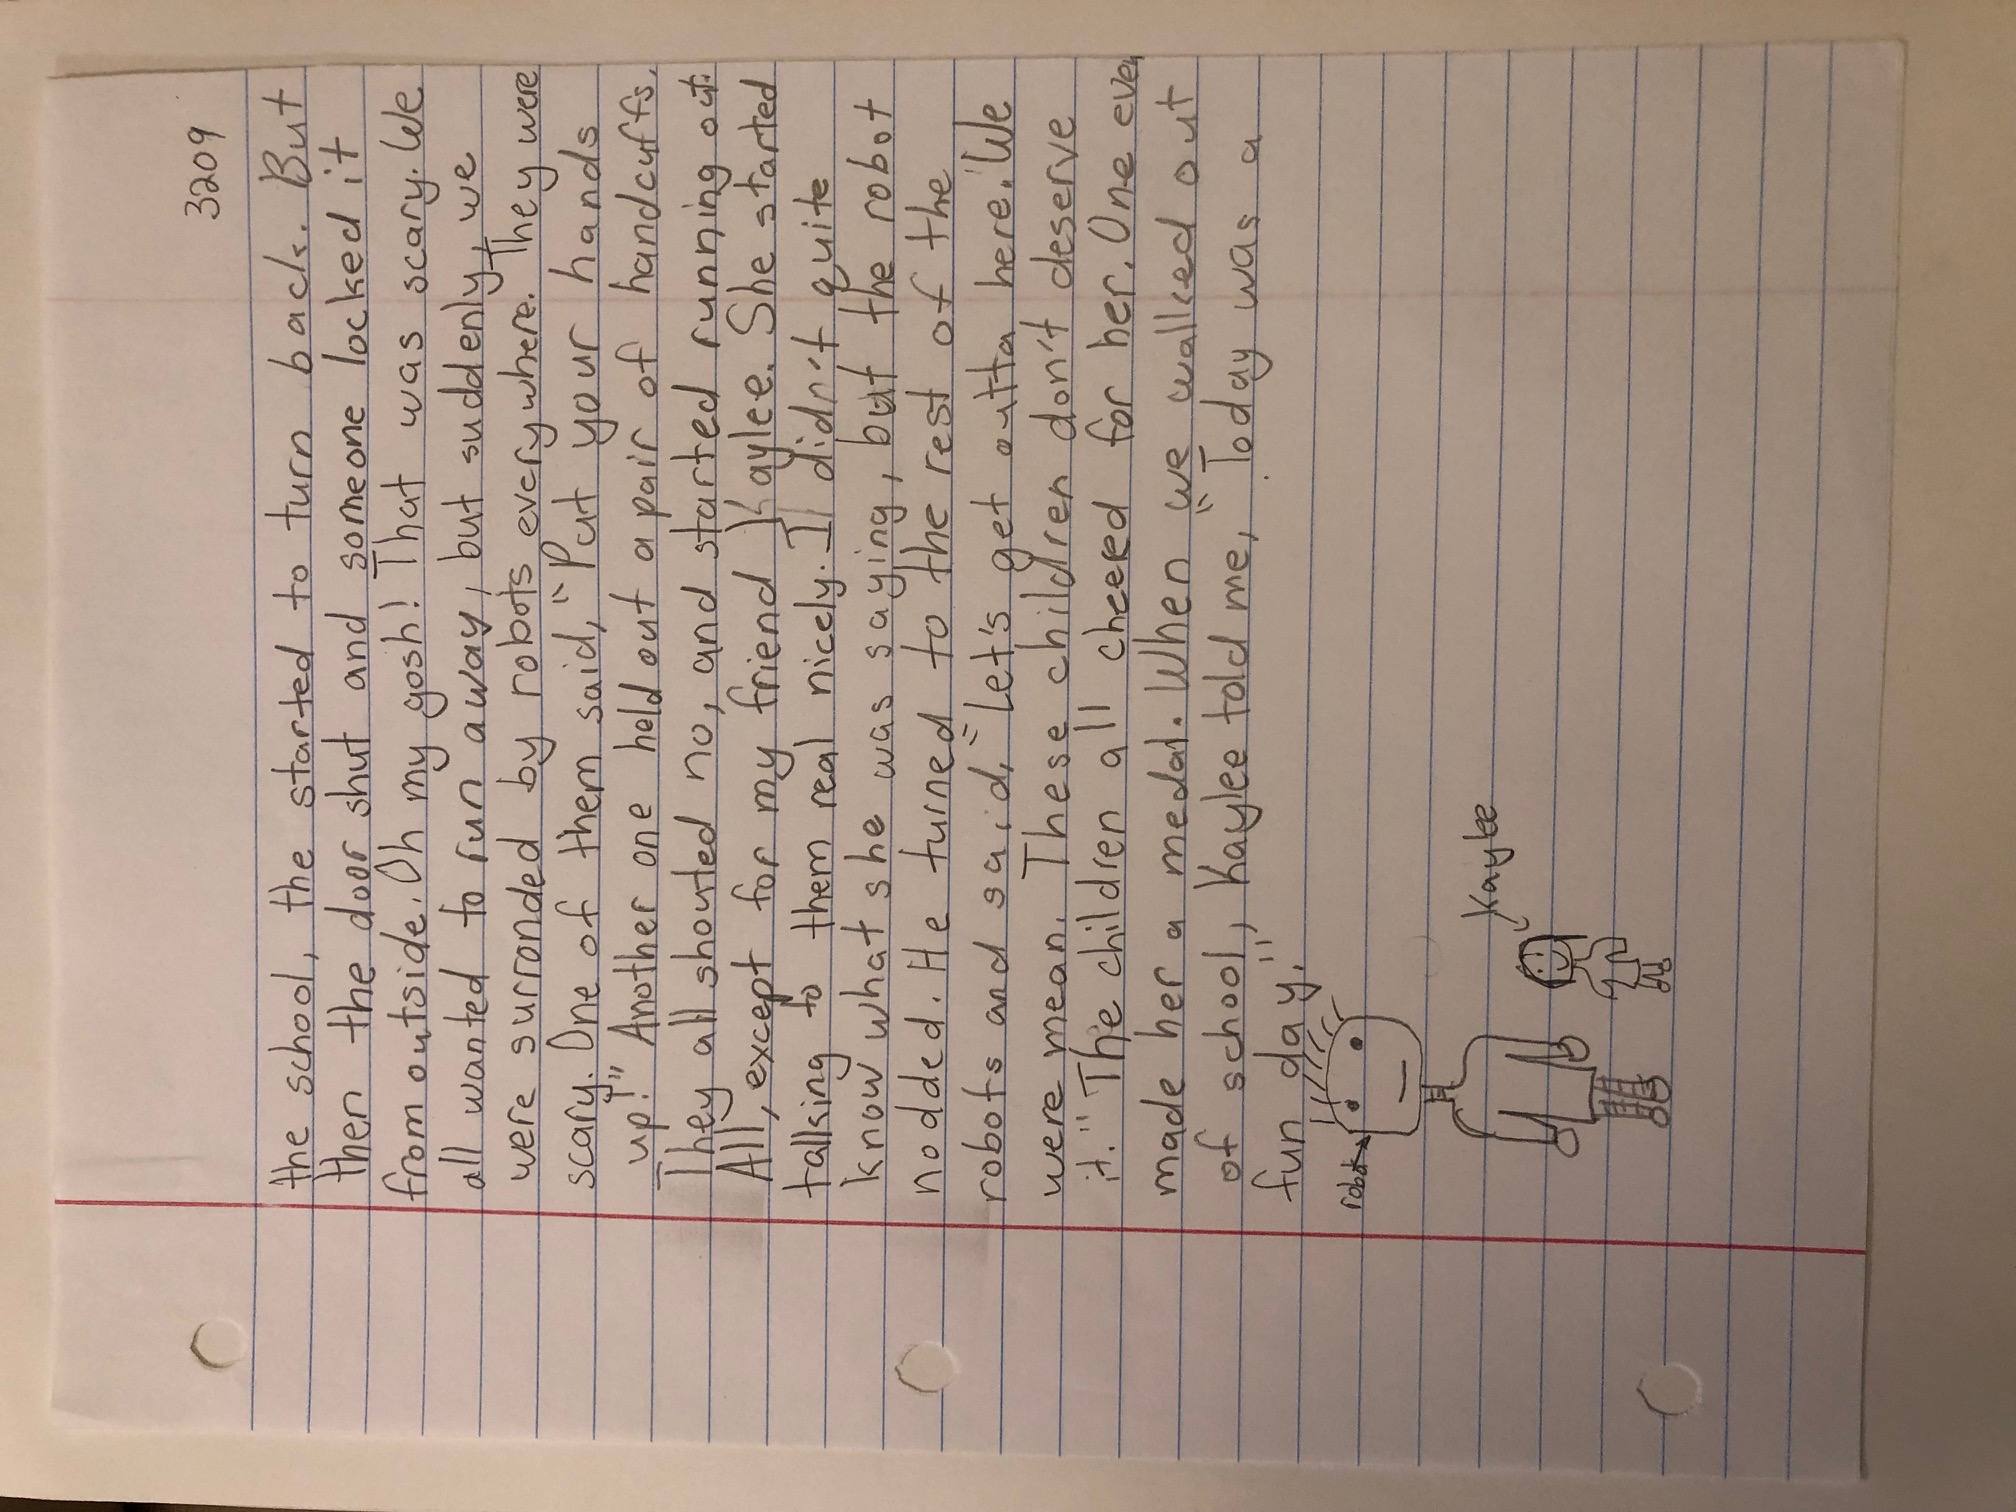 3209
the school, the started to turn back. But
then the door shut and someone locked it
from outside. Oh my gosh! That was scary. We
all wanted to run away, but suddenly, we
were surronded by robots everywhere. They were
scary. One of them said, "Put your hands
up!" Another one held out a pair of handcuffs.
They all shouted no, and started running out.
All, except for my friend Kaylee. She started
talking to them real nicely. I didn't quite
know what she was saying, but the robot
nodded. He turned to the rest of the
robots and said, "Let's get outta here. We
were mean. These children don't deserve
it." The children all cheered for her. One even
made her a medal. When we walked out
of school, Kaylee told me, "Today was a
fun day."
robot
Kaylee